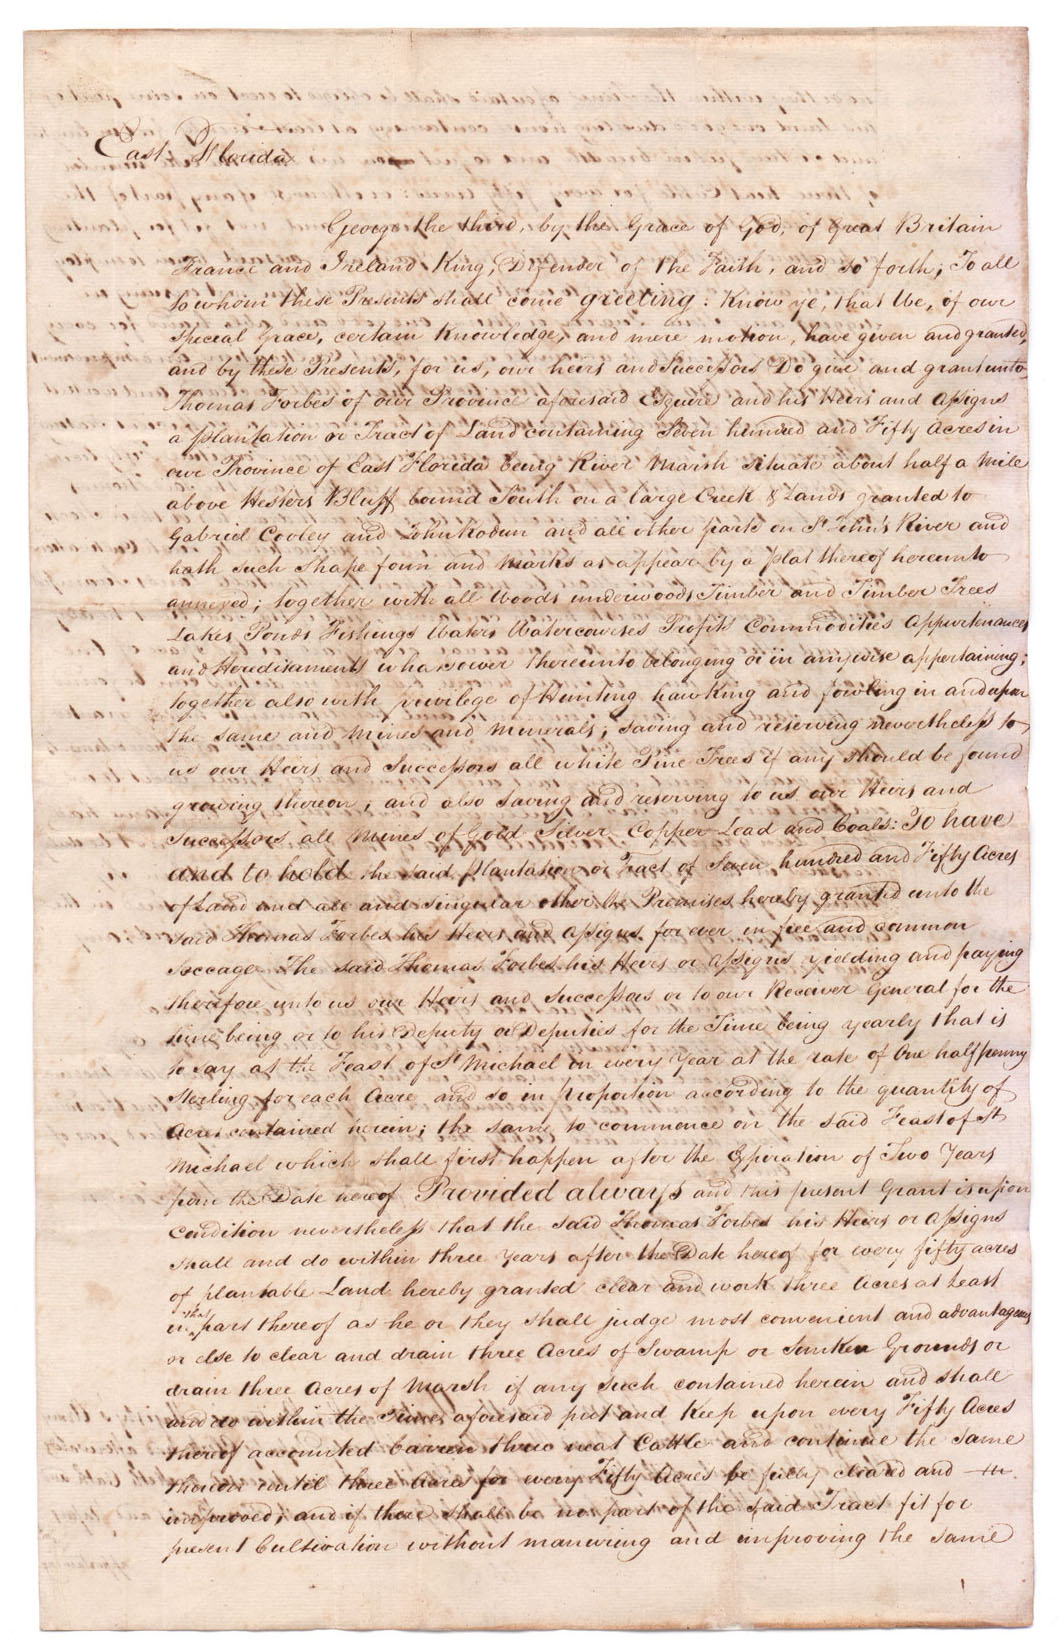 East Florida
George the third, by the Grace of God, of Great Britain
France and Ireland King, Defender of the Faith, and so forth; To all
to whom these Presents shall come greeting: Know ye, that We, of our
Special Grace, certain Knowledge, and mere motion, have given and granted,
and by these Presents, for us, our heirs and Successors Do give and grant unto
Thomas Forbes of our Province aforesaid Esquire and his Heirs and Assigns
a plantation or Tract of Land containing Seven hundred and Fifty Acres in
our Province of East Florida being River Marsh situate about half a Mile
above Hesters Bluff bound South on a large Creek & Lands granted to
Gabriel Cooley and John and all other parts on St. John's River and
hath such Shape form and Marks as appear by a plat thereof hereunto
annexed; together with all Woods underwoods Timber and Timber Trees
Lakes Ponds Fishings Waters Watercourses Profits Commodities Appurtenances
and Hereditaments whatsoever thereunto belonging or in anywise appertaining;
together also with privilege of Hunting hawking and fowling in and upon
the same and Mines and Minerals; saving and reserving nevertheless to
us our Heirs and Successors all white Pine Trees if any should be found
growing thereon; and also saving and reserving to us our Heirs and
Successors all Mines of Gold Silver Copper Lead and Coals: To have
and to hold the said Plantation or Tract of Seven hundred and Fifty Acres
of Land and all and singular other the Premises hereby granted unto the
said Thomas Forbes his Heirs and Assigns for ever in free and common
Soccage The said Thomas Forbes his Heirs or Assigns yielding and paying
therefore unto us our Heirs and Successors or to our Receiver General for the
time being or to his Deputy or Deputies for the Time being yearly that is
to say at the Feast of St Michael in every Year at the rate of One halfpenny
Sterling for each Acre and so in proportion according to the quantity of
Acres contained herein; the same to commence on the said Feast of St
Michael which shall first happen after the Expiration of Two Years
from the Date hereof Provided always and this present Grant is upon
condition nevertheless that the said Thomas Forbes his Heirs or Assigns
shall and do within three Years after the Date hereof for every fifty acres
of plantable Land hereby granted clear and work three Acres at least
in that part thereof as he or they shall judge most convenient and advantageous
or else to clear and drain three Acres of Swamp or Sunken Grounds or
drain three Acres of Marsh if any such contained herein and shall
and do within the Time aforesaid put and Keep upon every Fifty Acres
thereof accounted barren three neat Cattle and continue the same
thereon until three Acres for every Fifty Acres be fully cleared and
improved; and if there shall be no part of the said Tract fit for
present Cultivation without manuring and improving the same